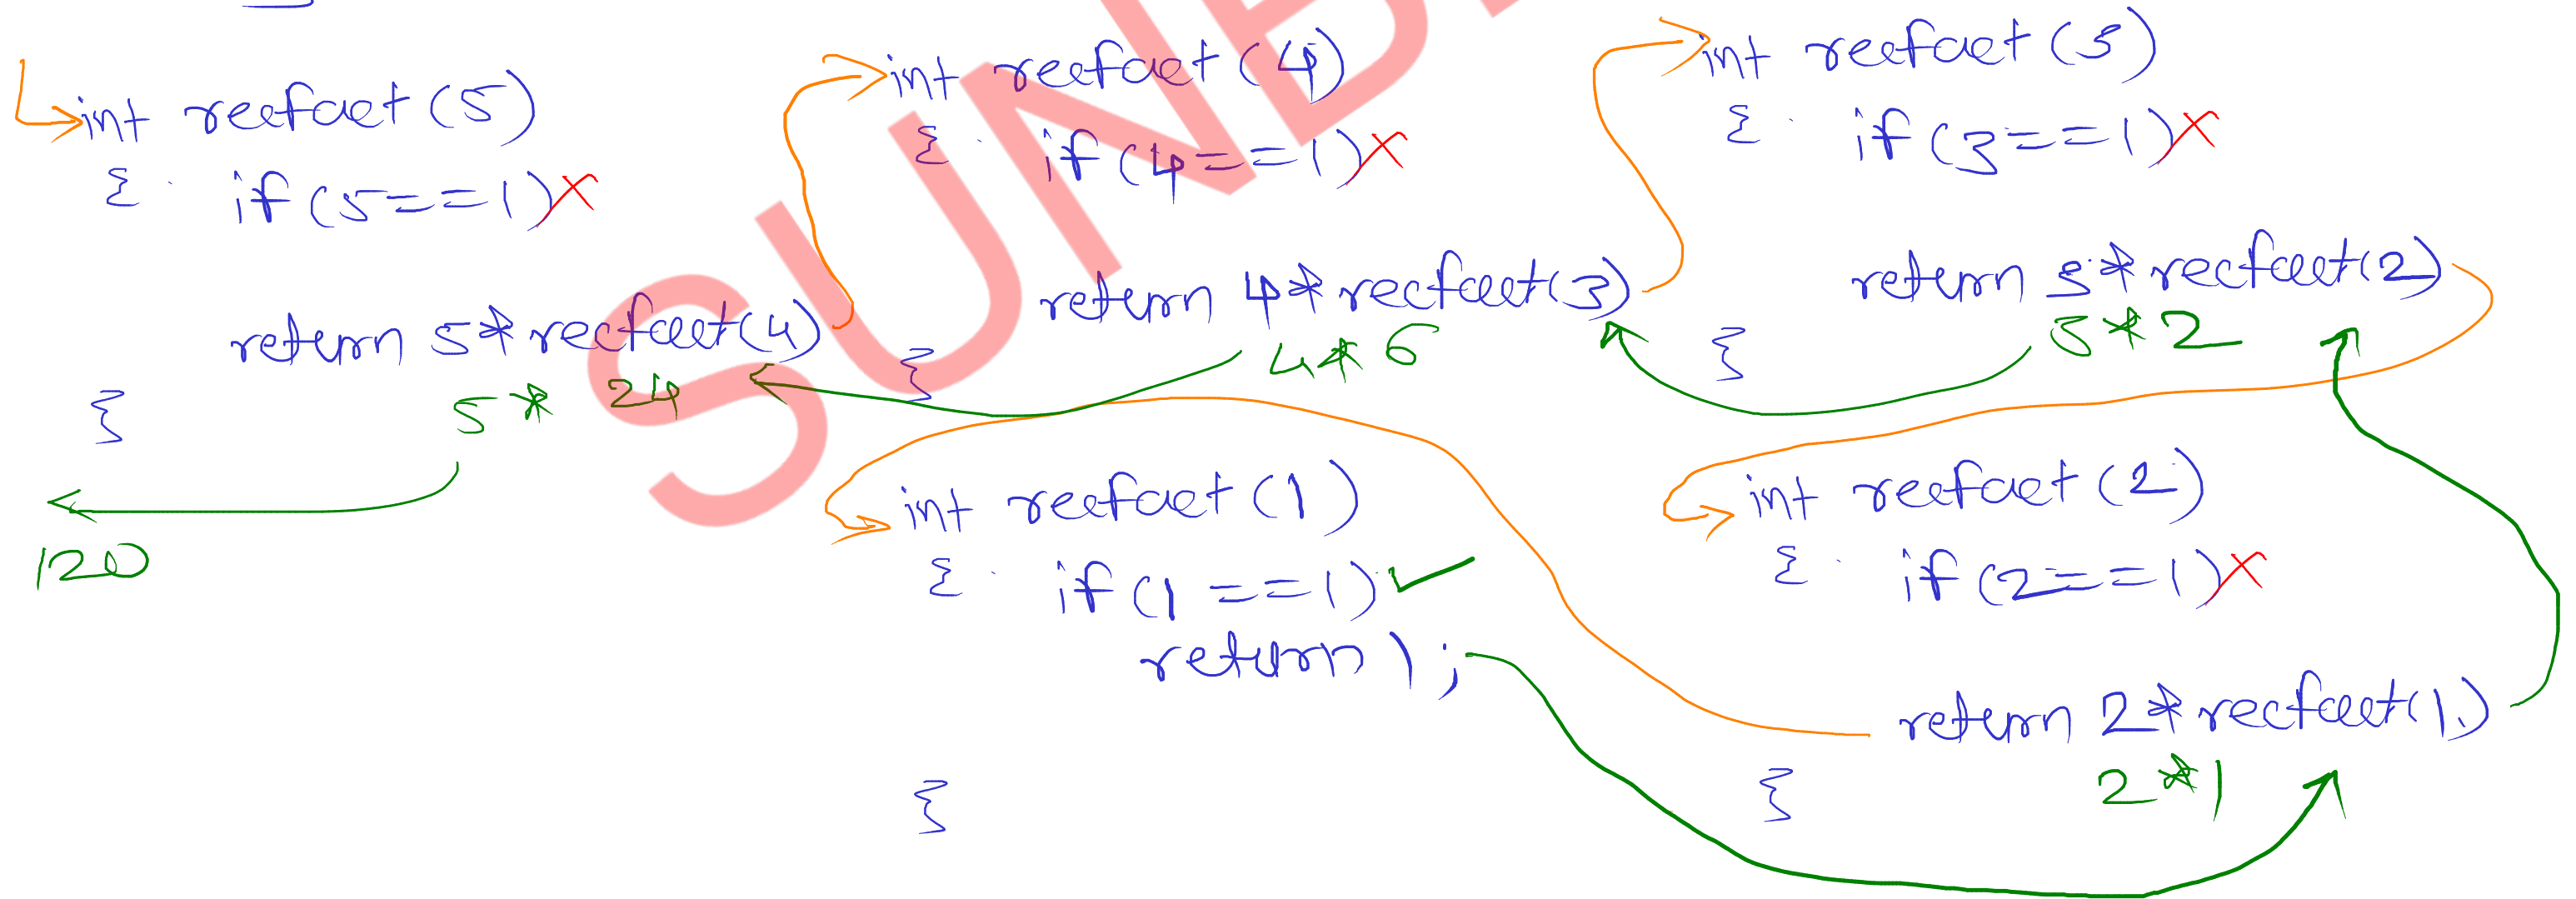 int recfact (5)
{ if (5==1) x
return 5*recfact(4)
5 * 24
}
120
int recfact (4)
{ if (4==1) x
return 4*recfact(3)
4 * 6
}
int recfact (3)
{ if (3==1) x
return 3*recfact(2)
3 * 2
}
int recfact (1)
{ if (1==1) ✓
return 1;
}
int recfact (2)
{ if (2==1) x
return 2*recfact(1)
2 * 1
}
SUNB